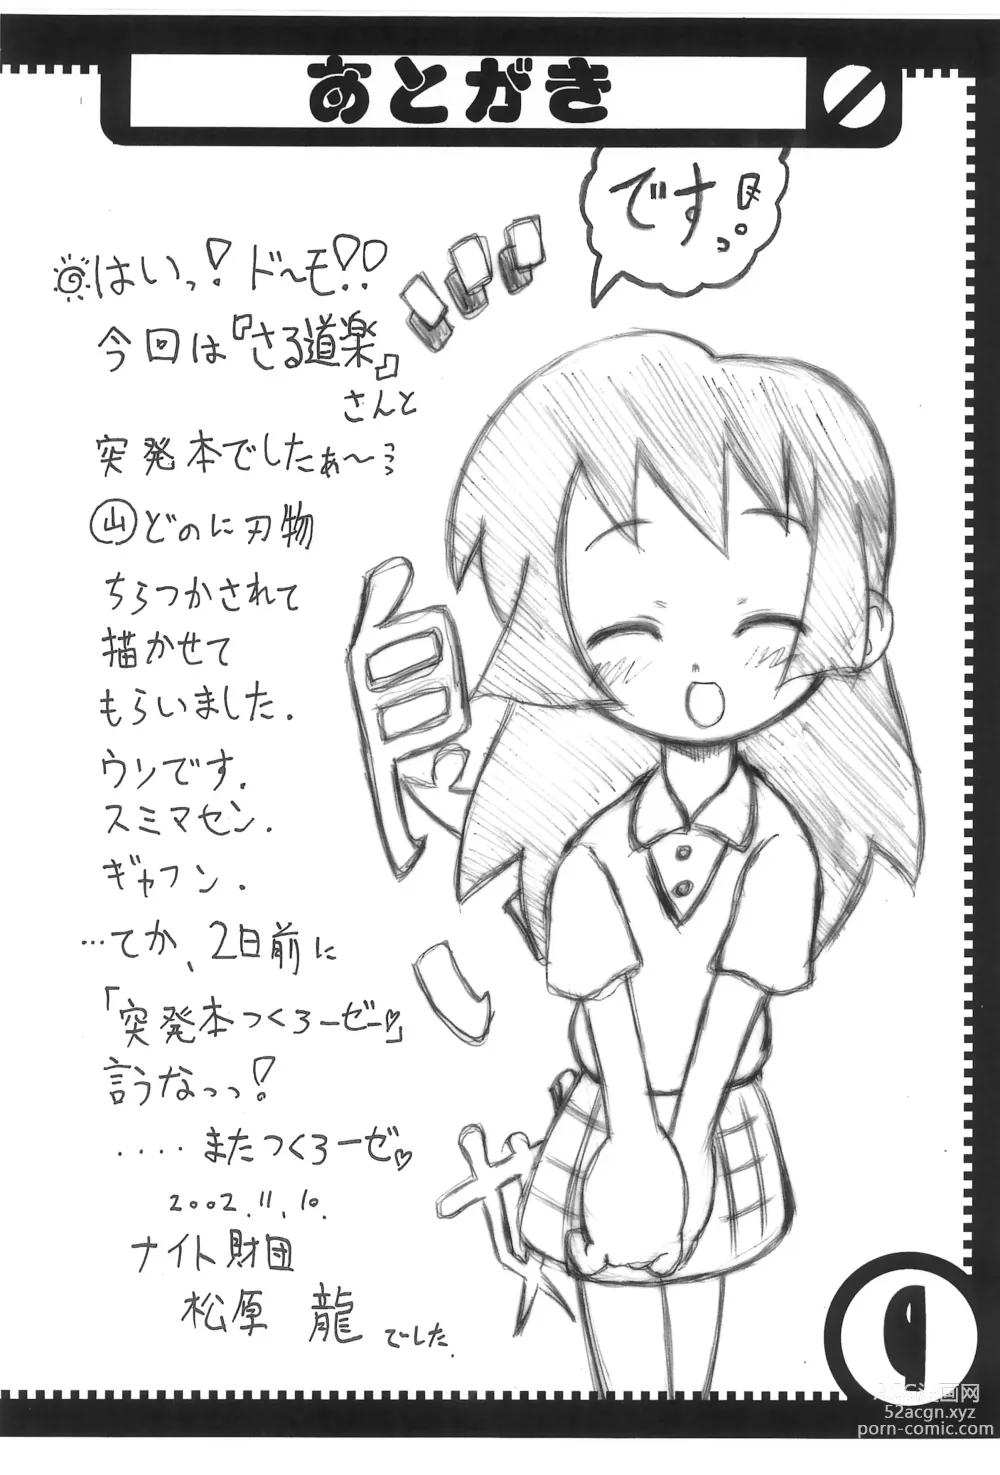 あとがき
です!!っ。
はいっ!ド〜モ!!
今回は『さる道楽』
さんと
突発本でしたぁ〜
山どのに刃物
ちらつかされて
描かせて
もらいました.
ウソです.
スミマセン.
ギャフン.
…てか、2日前に
「突発本つくろーぜー♡」
言うなっっ!
....またつくろーぜ♡
2002.11.10.
ナイト財団
松原 龍 でした.
52acgn.xyz
porn-comic.com